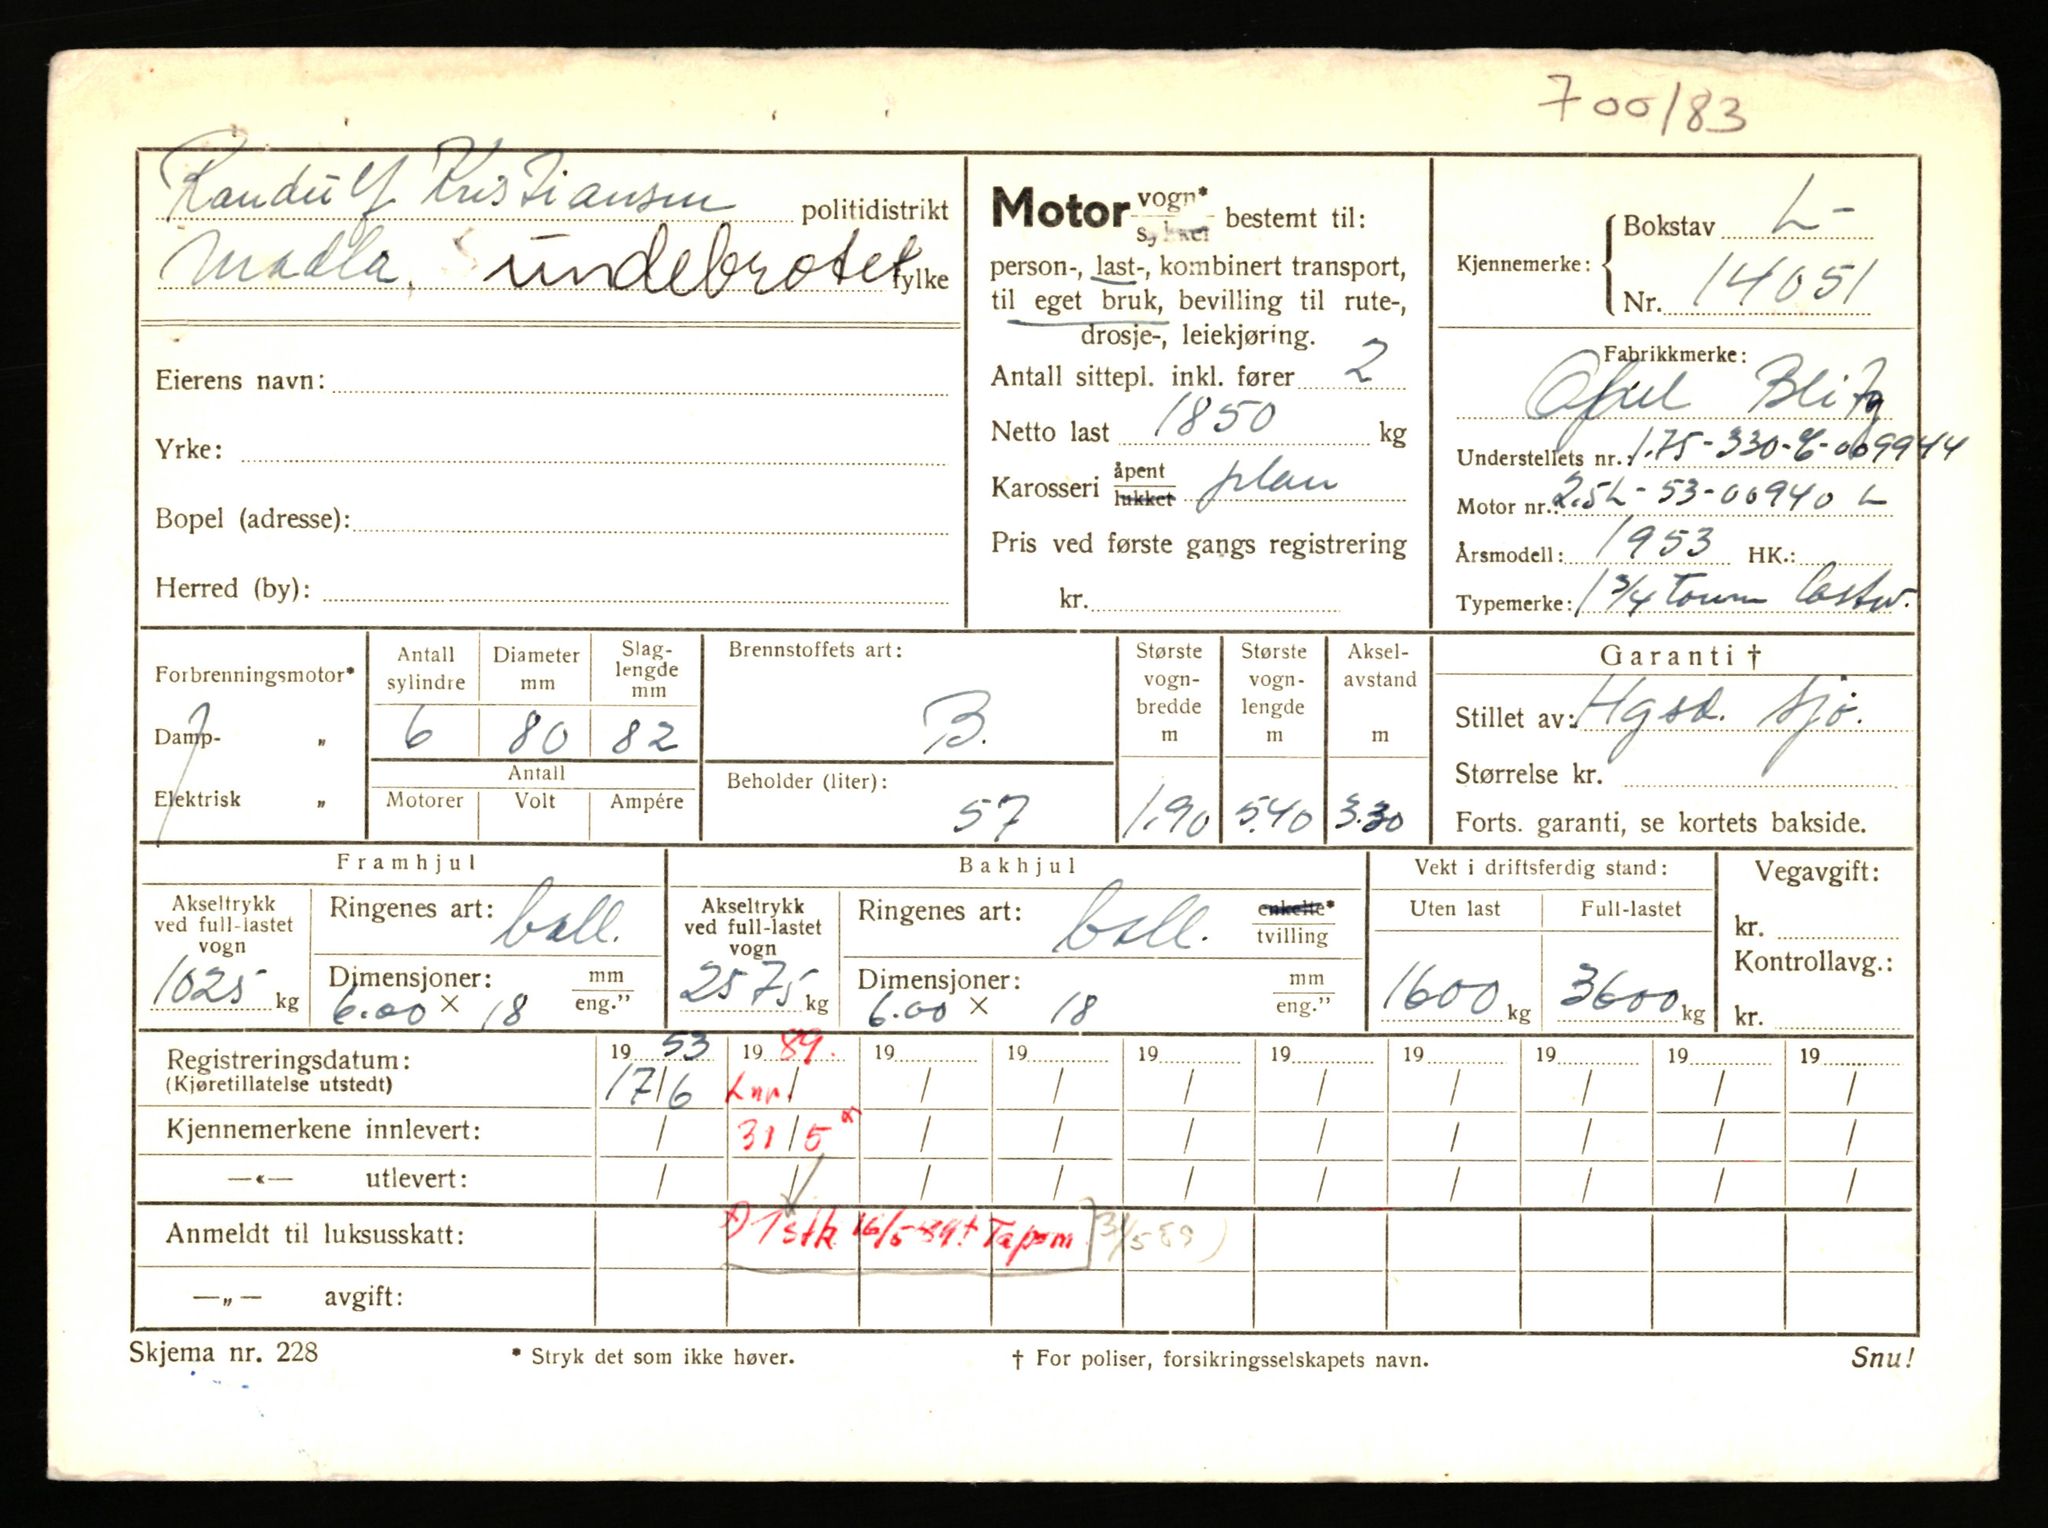 700/83
Randulf Kristiansen politidistrikt
Madla, Sundebrotet fylke
Eierens navn:
Yrke:
Bopel (adresse):
Herred (by):
Motor vogn* sykkel bestemt til:
person-, last-, kombinert transport,
til eget bruk, bevilling til rute-,
drosje-, leiekjøring.
Antall sittepl. inkl. fører 2
Netto last 1850 kg
Karosseri åpent lukket plan
Pris ved første gangs registrering
kr.
Kjennemerke: Bokstav L-
Nr. 14051
Fabrikkmerke:
Opel Blitz
Understellets nr.: 1.75-330-6-009944
Motor nr.: 2.5L-53-00940 L
Årsmodell: 1953 HK.:
Typemerke: 1 3/4 tonn lastv.
Forbrenningsmotor*
Damp- "
Elektrisk "
Antall sylindre Diameter mm Slag-lengde mm
6 80 82
Antall
Motorer Volt Ampére
Brennstoffets art:
B.
Beholder (liter):
57
Største vogn-bredde m
1,90
Største vogn-lengde m
5.40
Aksel-avstand m
3.30
Garanti †
Stillet av: Hgsd. Sjø.
Størrelse kr.
Forts. garanti, se kortets bakside.
Framhjul
Akseltrykk ved full-lastet vogn
1025 kg
Ringenes art: ball.
Dimensjoner: mm eng."
6.00 × 18
Bakhjul
Akseltrykk ved full-lastet vogn
2575 kg
Ringenes art: ball. enkelte* tvilling
Dimensjoner: mm eng."
6.00 × 18
Vekt i driftsferdig stand:
Uten last Full-lastet
1600 kg 3600 kg
Vegavgift:
kr.
Kontrollavg.:
kr.
Registreringsdatum: 19 53 19 89. 19 19 19 19 19 19 19 19
(Kjøretillatelse utstedt) 17/6 Lnr. / / / / / / / / /
Kjennemerkene innlevert: / 31/5 * / / / / / / / /
—«— utlevert: / / / / / / / / / /
Anmeldt til luksusskatt: *) 1 stk 16/5-89 + Tapsm (31/5 89)
—„— avgift:
Skjema nr. 228 * Stryk det som ikke høver. † For poliser, forsikringsselskapets navn. Snu!